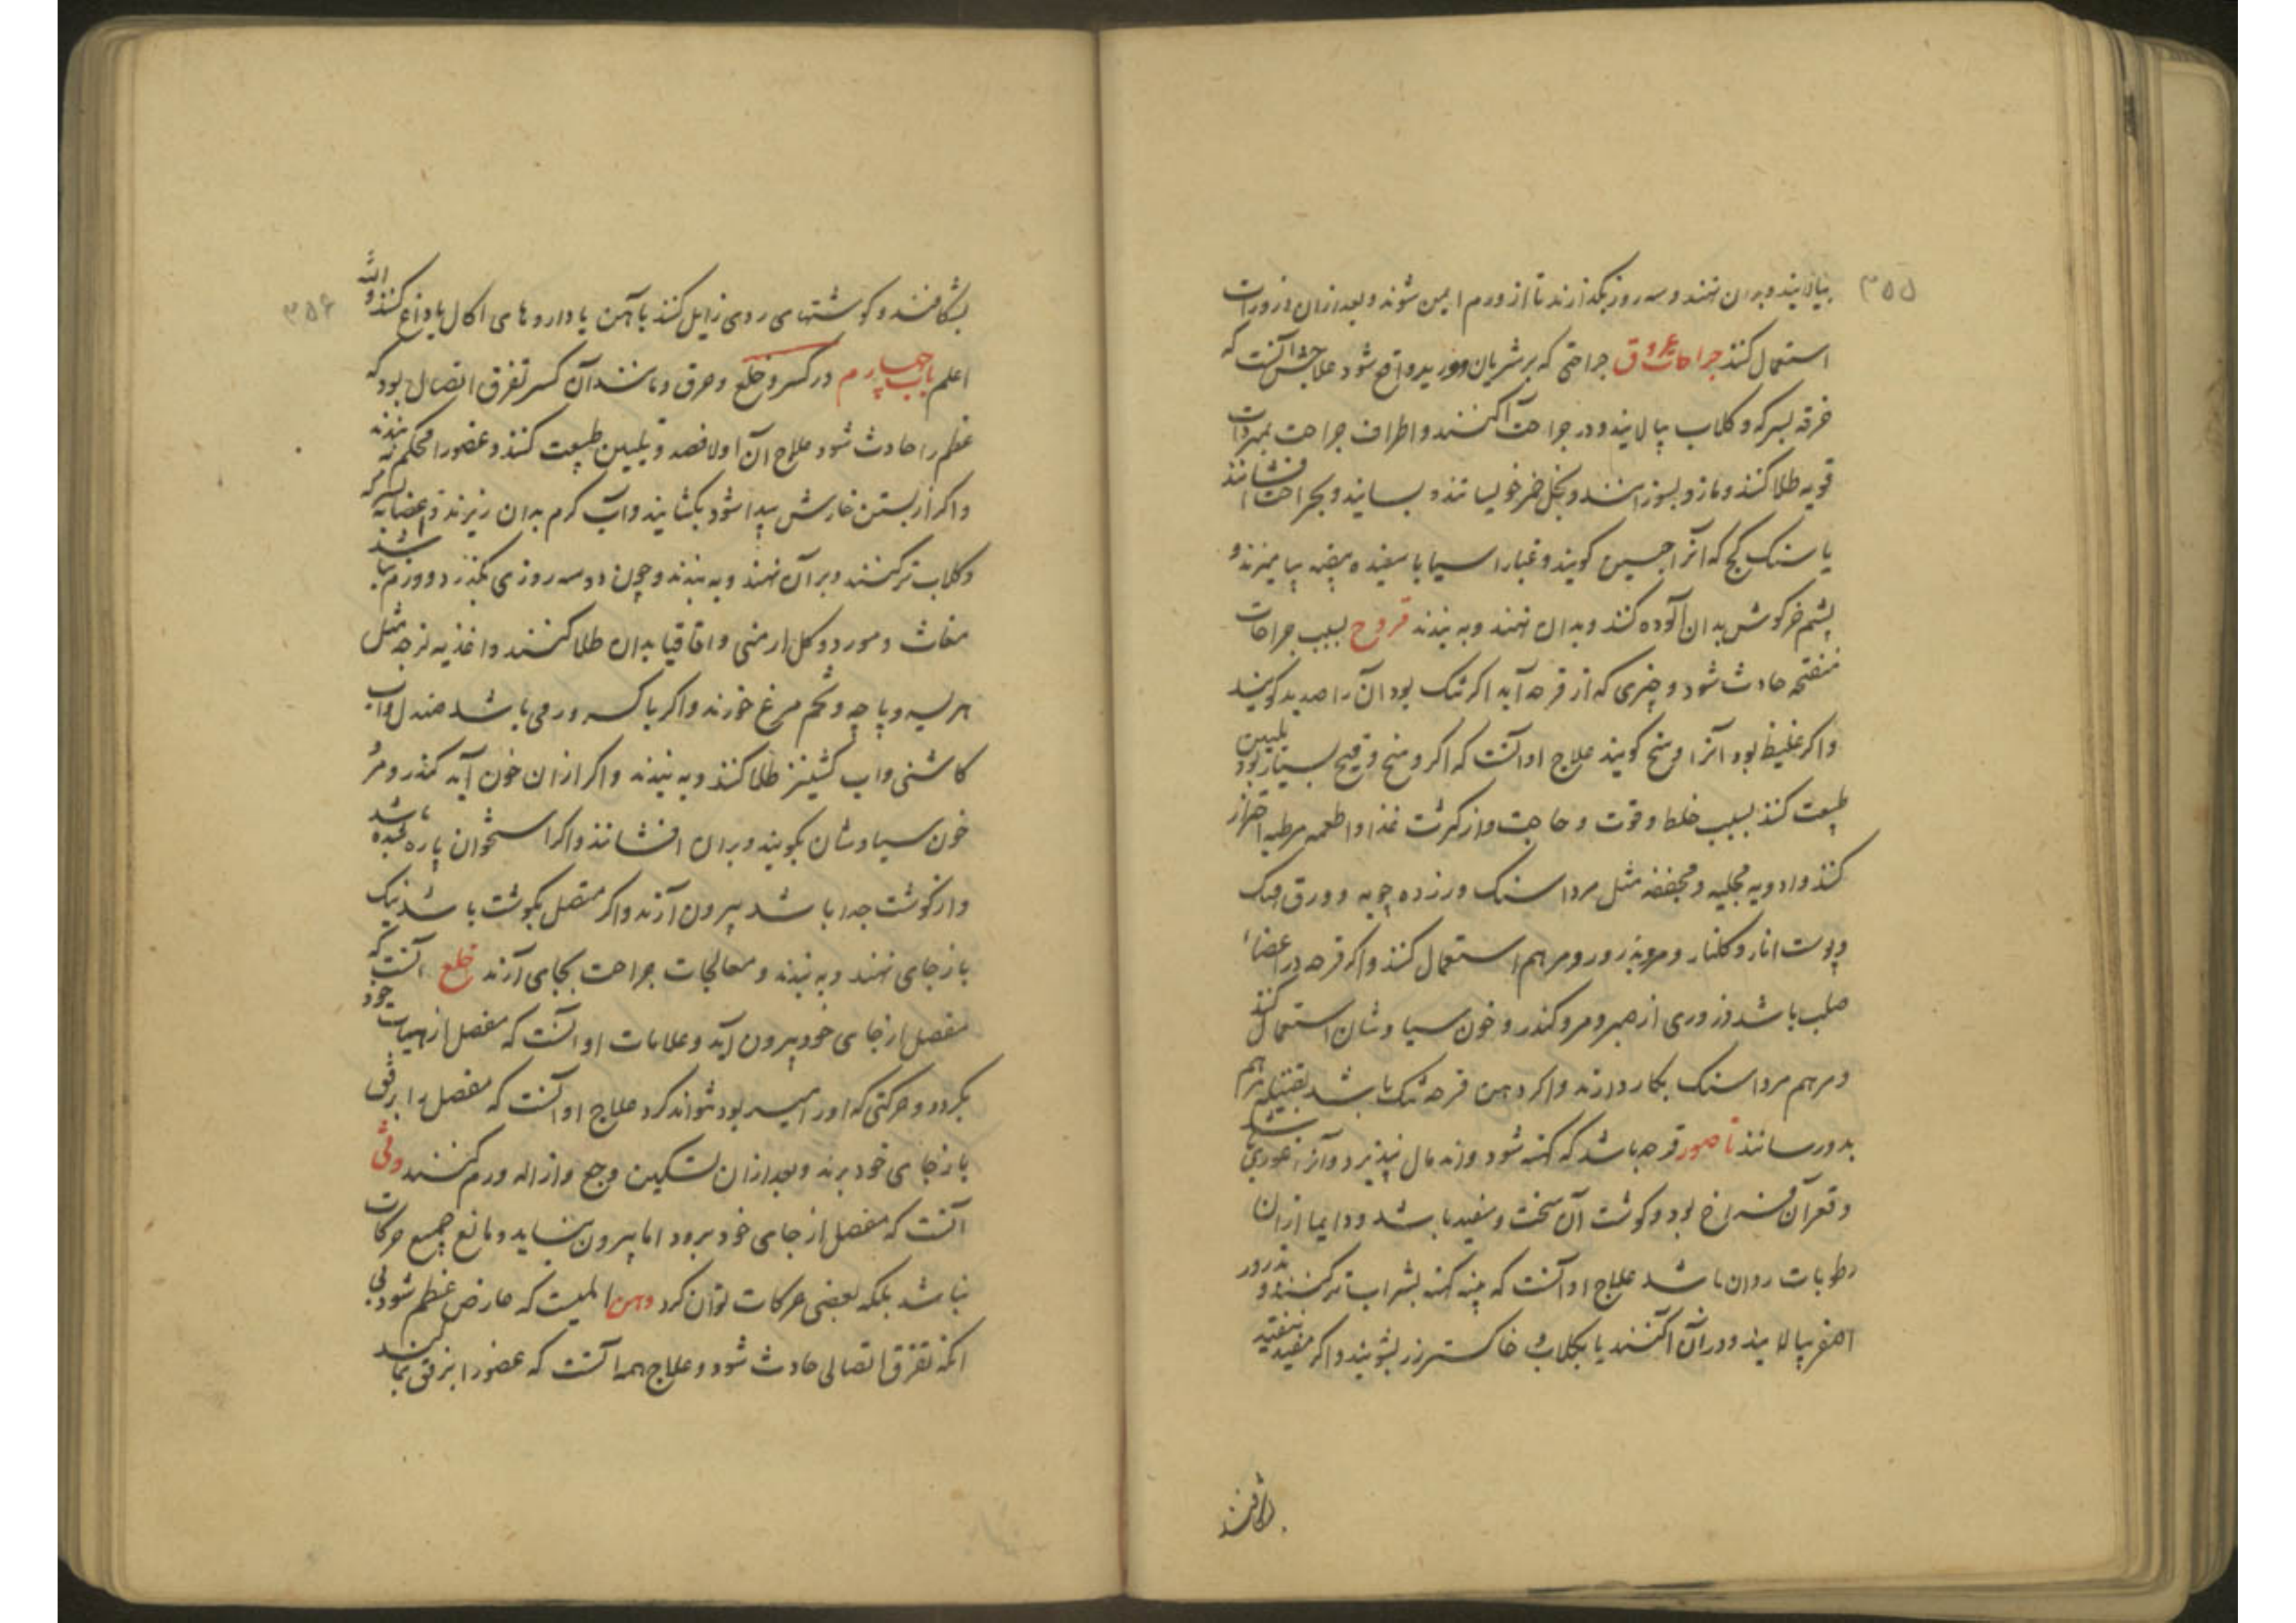 ۳۵۵
بیالایند و بر ان نهند و سه روز بگذارند تا از ورم ایمن شوند و بعد از ان ذرورات
استعمال کنند جراحات عروق جراحتی که بر شریان و ورید واقع شود علاجش آنست که
خرقه بسرکه و کلاب بیالایند و در جراحت آکنند و اطراف جراحت بمبردات
قویه طلا کنند و مازو بسوزانند و بخل خمر خویسانند و بسایند و بجراحت افشانند
یا سنک کچ که آنرا جبسین کویند و غبار اسیا با سفیده بیضه بیامیزند و
پشم خرکوش بدان آلوده کنند و بدان نهند و به بندند قروح بسبب جراحات
منفتحه حادث شود و چیزی که از قرحه آید اگر تنک بود آن را صدید کویند
و اکر غلیظ بود آنرا وسخ کویند علاج او آنست که اکر وسخ و قیح بسیار بود تلیین
طبیعت کنند بسبب خلط و قوت و حاجت و از کثرت غذا و اطعمه مرطبه احتراز
کنند و ادویه مجلیه و مجففه مثل مرداسنک و زرده چوبه و ورق
و پوست انار و کلنار و مرو بذرور و مرهم استعمال کنند و اکر قرحه در اعضاء
صلب باشد ذروری از صبر و مر و کندر و خون سیاوشان استعمال کنند
و مرهم مرداسنک بکار دارند و اکر دهن قرحه تنک باشد بفتیله مرهم
بدو رسانند ناصور قرحه باشد که کهنه شود و اندمال نپذیرد و آنرا غوری باشد
و قعر آن فراخ بود و کوشت آن سخت و سفید باشد و دایما از ان
رطوبات روان باشد علاج او آنست که پنبه کهنه بشراب تر کنند و بذرور
اصفر بیالایند و در آن آکنند یا بکلاب خاکستر رز بشویند و اکر مفید نیفتد
بشکافند
۳۵۶
بشکافند و کوشتهای ردی زایل کنند بآهن یا داروهای اکال یا داغ کنند والله
اعلم باب چهارم در کسر و خلع و حرق و مانند آن کسر تفرق اتصال بود که
عظم را حادث شود علاج آن اولا فصد و تلیین طبیعت کنند و عضو را محکم نه بندند
و اکر از بستن خارش پیدا شود بکشایند و آب کرم بدان ریزند و عصابه بسرکه
و کلاب تر کنند و بر آن نهند و به بندند و چون دو سه روزی بگذرد و ورم نباشد
مغاث و مورد و کل ارمنی و اقاقیا بدان طلا کنند و اغذیه لزجه مثل
هریسه و پاچه و تخم مرغ خورند و اکر با کسر ورمی باشد صندل و آب
کاشنی و اب کشنیز طلا کنند و به بندند و اکر از ان خون آید کندر و مر و
خون سیاوشان بکوبند و بر ان افشانند و اکر استخوان پاره شده باشد
و از کوشت جدا باشد بیرون آرند و اکر متصل بکوشت باشد نیک
باز جای نهند و به بندند و معالجات جراحت بجای آرند خلع آنست که
مفصل از جای خود بیرون آید و علامات او آنست که مفصل از هیات خود
بکردد و حرکتی که او را میسر بود نتواند کرد علاج او آنست که مفصل را برفق
باز جای خود برند و بعد از ان تسکین وجع و ازاله ورم کنند وثی
آنست که مفصل از جای خود برود اما بیرون نیاید و مانع جمیع حرکات
نباشد بلکه بعضی حرکات توان کرد وهن المیست که عارض عظم شود بی
انکه تفرق اتصالی حادث شود و علاج همه آنست که عضو را برفق بمالند